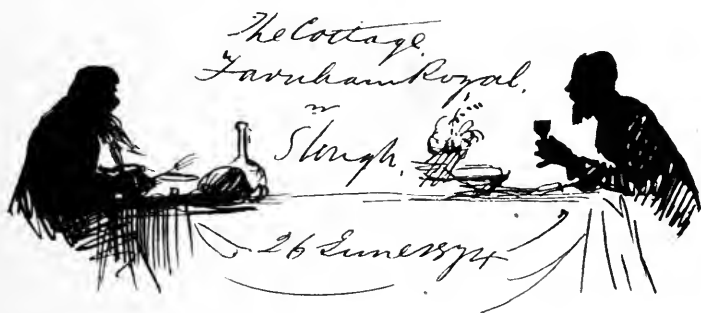 The Cottage
Farnham Royal.
nr
Slough.
26 June 1874